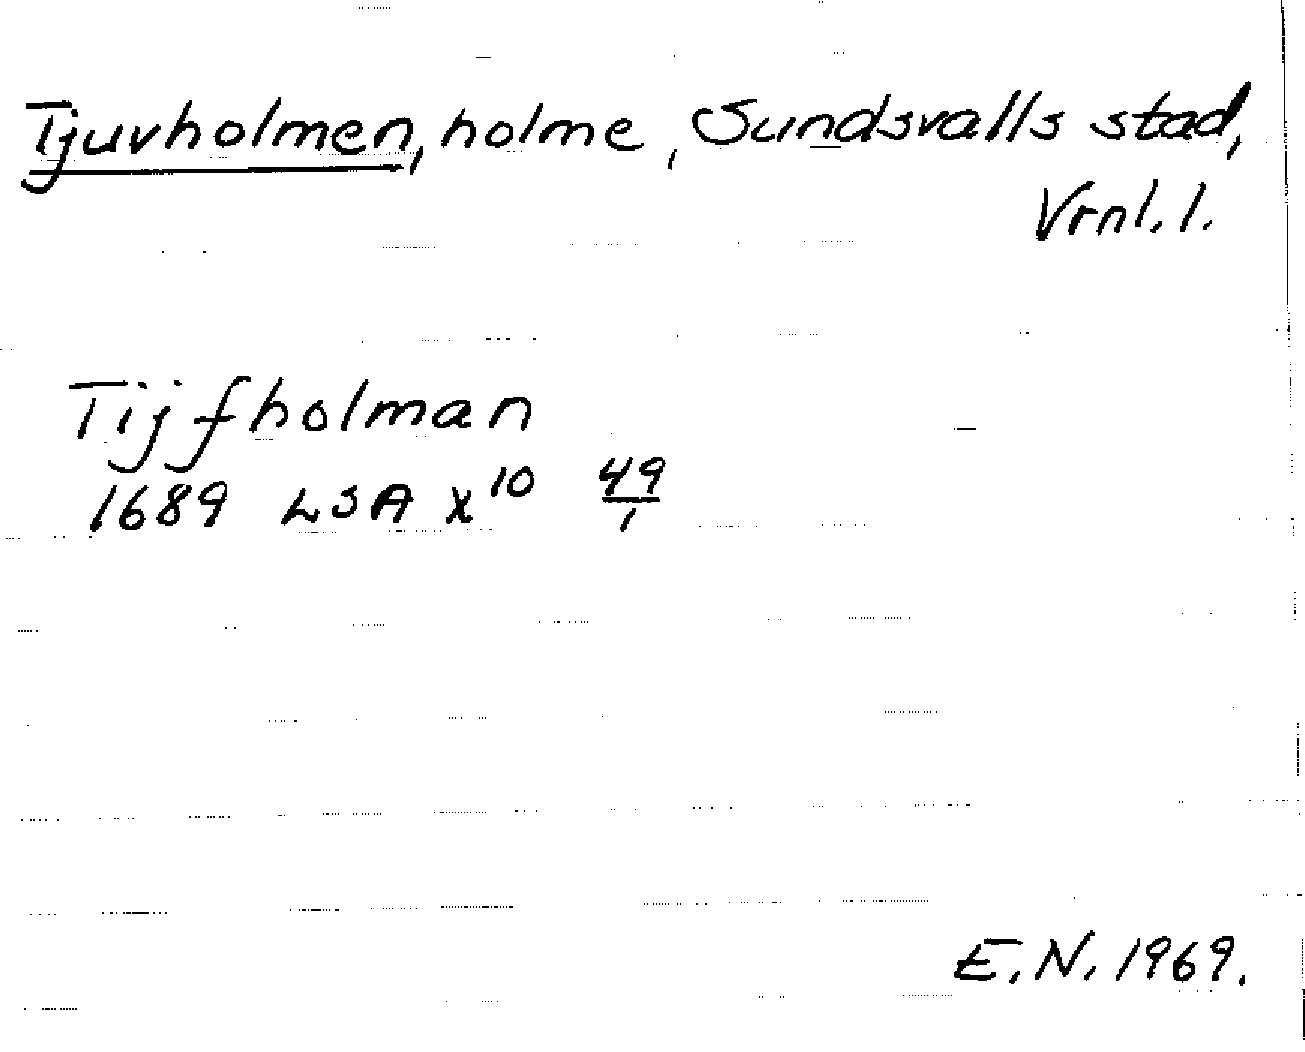 Tjuvholmen, holme, Sundsvalls stad,
Vrnl. l.
Tijfholman
1689 LSA X¹⁰ 49/1
E.N. 1969.